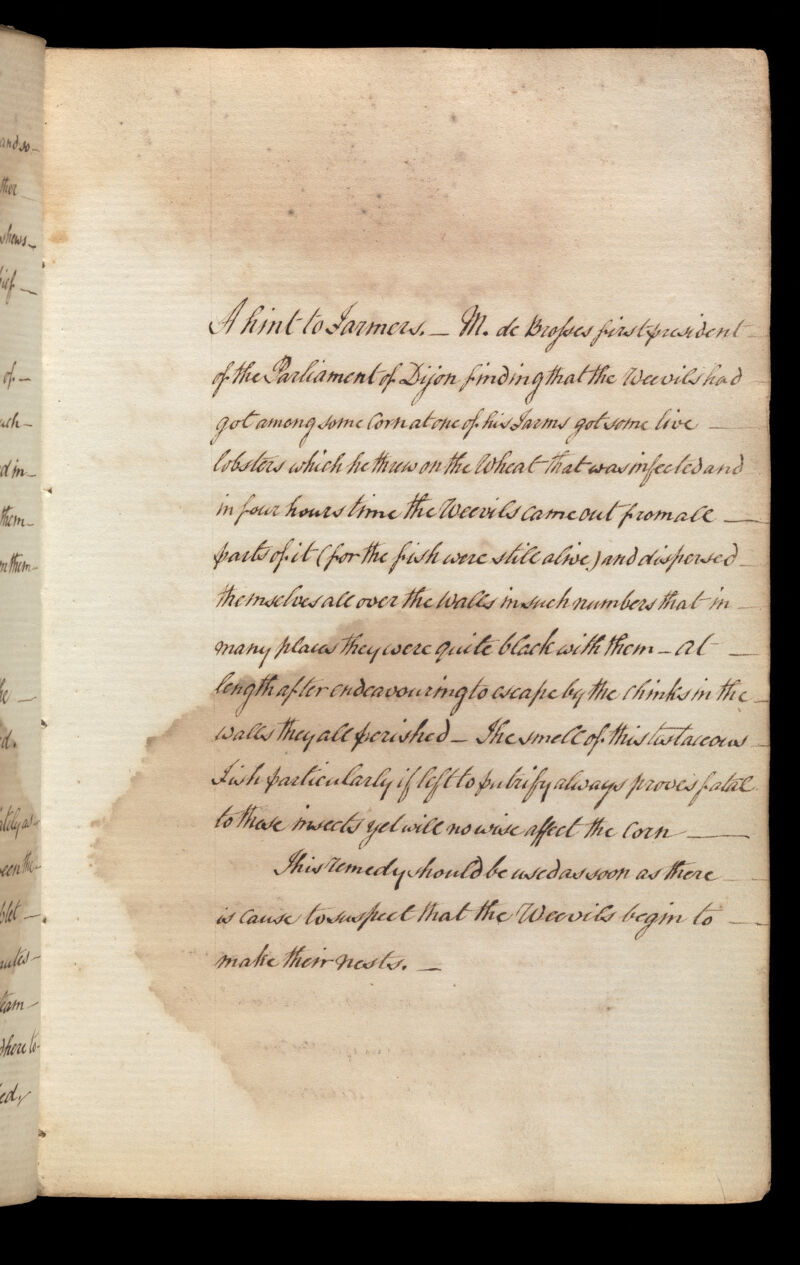 and so
ther
shews
of
uch
d in
them
m them
he
d.
ately as
een the
blet
nutes
team
where to
ed
A hint to Farmers. — M. de Brosses first president
of the Parliament of Dijon finding that the Weevils had
got among some Corn at one of his Farms got some live
lobsters which he threw on the Wheat that was infected and
in four hours time the Weevils came out from all
parts of it (for the fish were still alive) and dispersed
themselves all over the Walls in such numbers that in
many places they were quite black with them — at
length after endeavouring to escape by the chinks in the
walls they all perished — The smell of this testaceous
Fish particularly if left to putrify always proves fatal
to these insects yet will no wise affect the Corn
This remedy should be used as soon as there
is cause to suspect that the Weevils begin to
make their nests. —